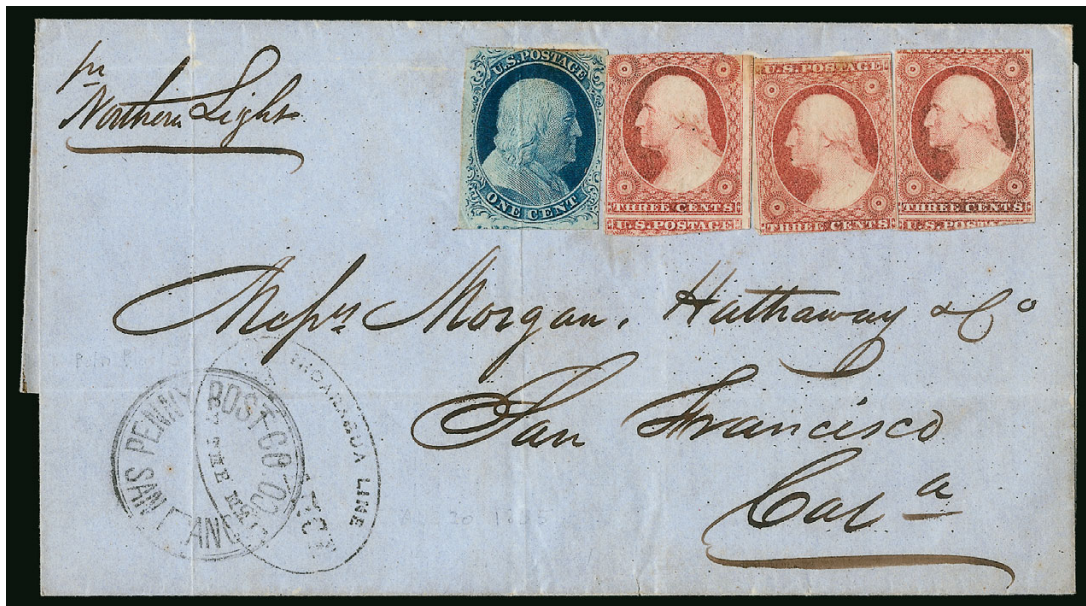 pr
Northern Light
U.S. POSTAGE
ONE CENT
THREE CENTS
U.S. POSTAGE
U.S. POSTAGE
THREE CENTS
THREE CENTS
U.S. POSTAGE
Messrs Morgan, Hathaway & Co
San Francisco
Cala
PENNY POST CO.
SAN
LINE
THE
20